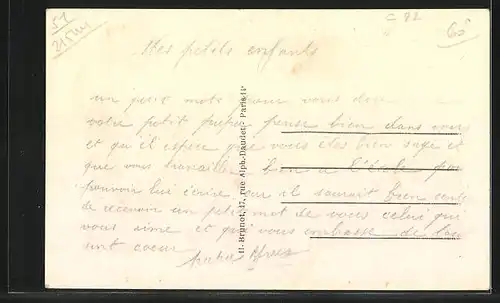 51
215M
C 92
60
Mes petits enfants
un petit mots pour vous dire
votre petit papa pense bien dans vous
et qu'il espere que vous etes bien sage et
que vous travailler bien a l'école pour
pouvoir lui écrire car il sourait bien contt
de recevoir un petit mot de vous celui qui
vous aime et qui vous embrasse de tou
sont coeur
H. Brunot, 17, rue Alph.-Daudet, Paris-14ᵉ